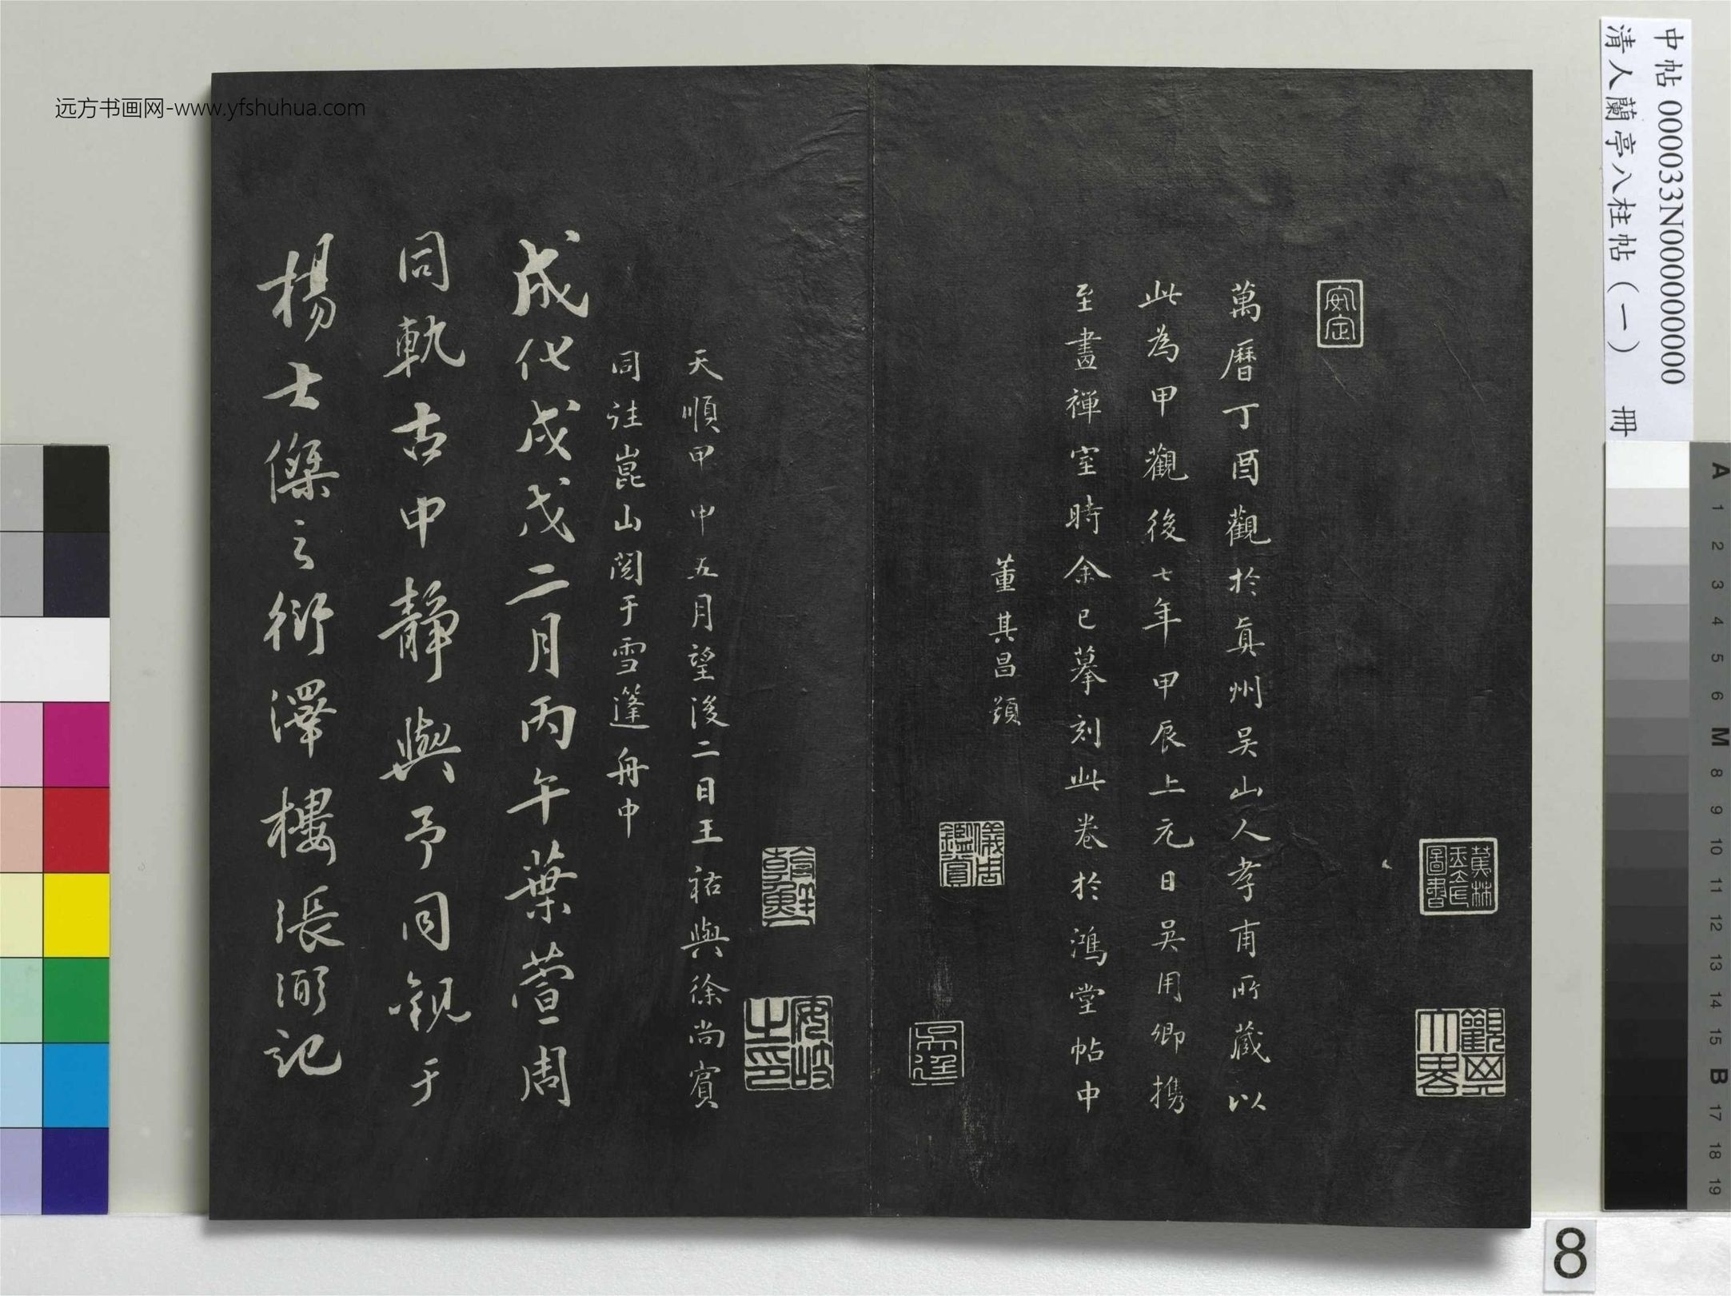 远方书画网-www.yfshuhua.com
中帖 000033N000000000
清人蘭亭八柱帖（一） 冊
安定
萬曆丁酉觀於真州吴山人孝甫所藏以
此為甲觀後七年甲辰上元日吴用卿携
至畫禪室時余已摹刻此卷於鴻堂帖中
董其昌題
蕉林
玉立氏
圖書
觀其
大略
儀周
鑑賞
天順甲申五月望後二日王祐與徐尚賓
同詿崑山閲于雪篷舟中
安岐
之印
成化戊戌二月丙午葉萱周
同軌古中靜與予同觀于
楊士傑之衍澤樓張弼記
8
A 1 2 3 4 5 6 M 8 9 10 11 12 13 14 15 B 17 18 19